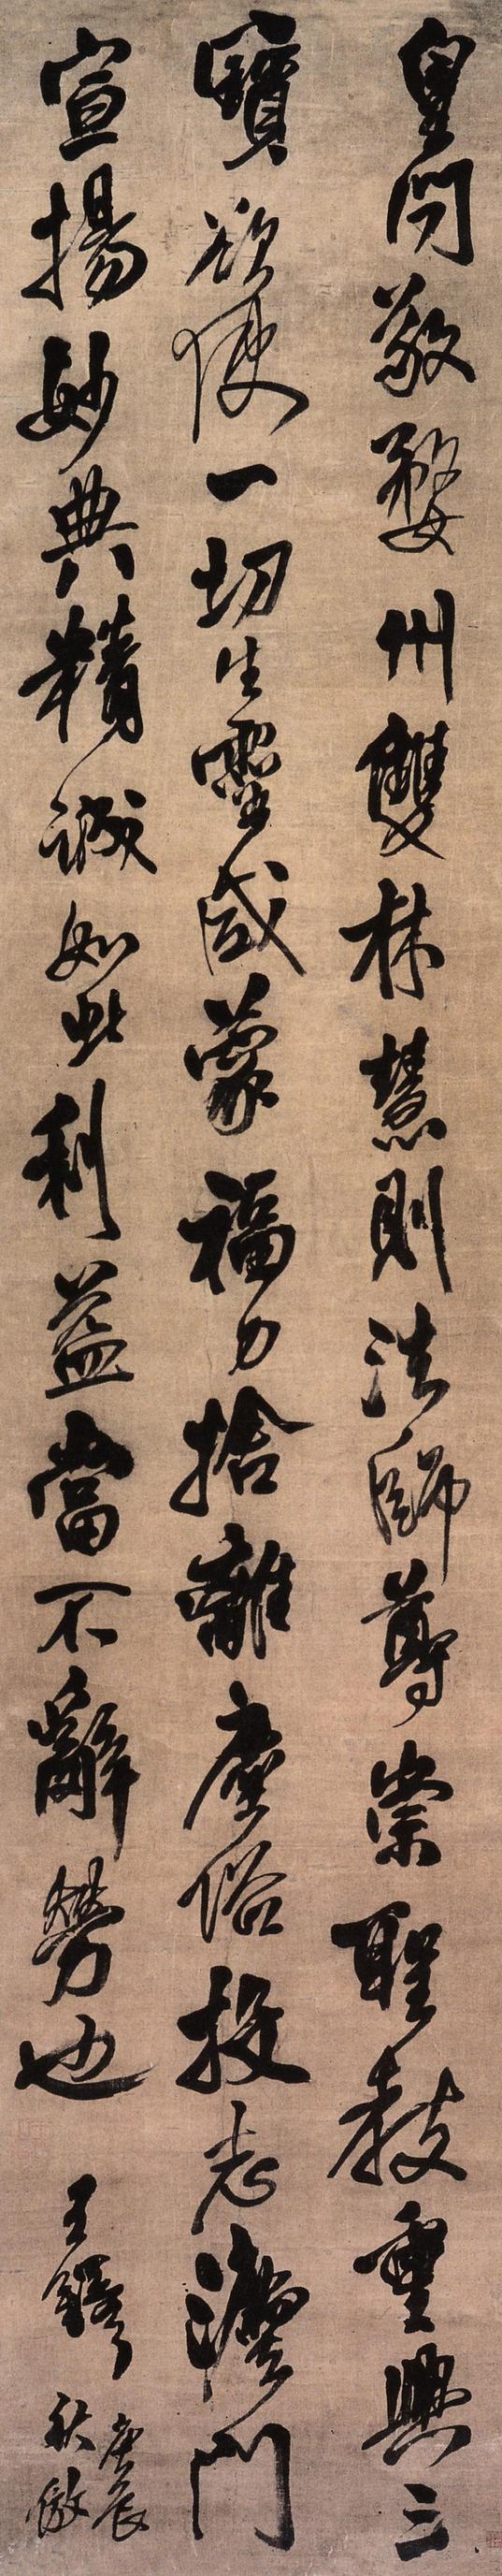 皇問敬婺州雙林慧則法師尊崇聖教重興三
寶欲使一切生靈咸蒙福力捨離塵俗投志濟門
宣揚妙典精誠如此利益當不辭勞也
王鐸
庚辰
秋倣